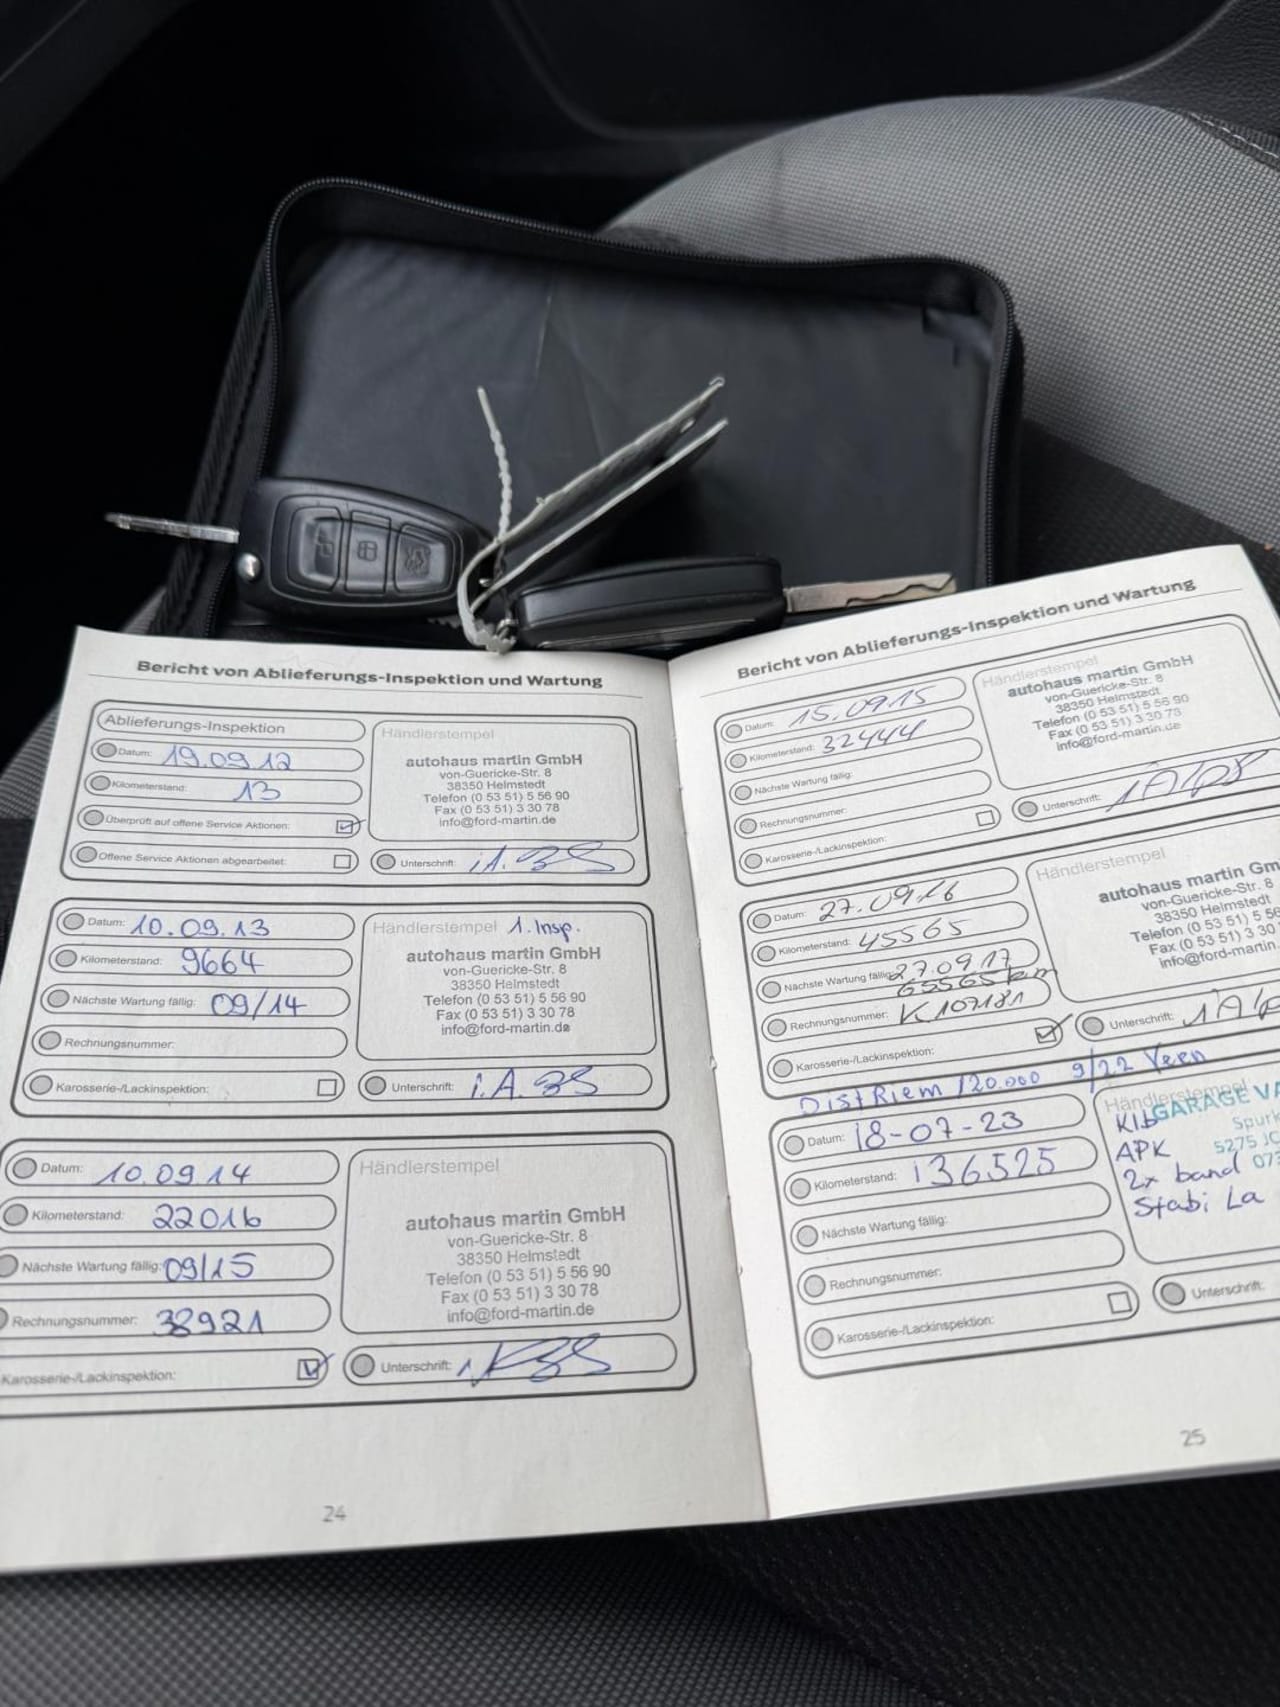 Bericht von Ablieferungs-Inspektion und Wartung
Ablieferungs-Inspektion
Datum: 19.09.12
Kilometerstand: 13
Überprüft auf offene Service Aktionen:
Offene Service Aktionen abgearbeitet:
Händlerstempel
autohaus martin GmbH
von-Guericke-Str. 8
38350 Helmstedt
Telefon (0 53 51) 5 56 90
Fax (0 53 51) 3 30 78
info@ford-martin.de
Unterschrift: i.A.
Datum: 10.09.13
Kilometerstand: 9664
Nächste Wartung fällig: 09/14
Rechnungsnummer:
Karosserie-/Lackinspektion:
Händlerstempel 1. Insp.
autohaus martin GmbH
von-Guericke-Str. 8
38350 Helmstedt
Telefon (0 53 51) 5 56 90
Fax (0 53 51) 3 30 78
info@ford-martin.de
Unterschrift: i.A.
Datum: 10.09.14
Kilometerstand: 22016
Nächste Wartung fällig: 09/15
Rechnungsnummer: 38921
Karosserie-/Lackinspektion:
Händlerstempel
autohaus martin GmbH
von-Guericke-Str. 8
38350 Helmstedt
Telefon (0 53 51) 5 56 90
Fax (0 53 51) 3 30 78
info@ford-martin.de
Unterschrift:
24
Bericht von Ablieferungs-Inspektion und Wartung
Datum: 15.09.15
Kilometerstand: 32444
Nächste Wartung fällig:
Rechnungsnummer:
Karosserie-/Lackinspektion:
Händlerstempel
autohaus martin GmbH
von-Guericke-Str. 8
38350 Helmstedt
Telefon (0 53 51) 5 56 90
Fax (0 53 51) 3 30 78
info@ford-martin.de
Unterschrift:
Datum: 27.09.16
Kilometerstand: 45565
Nächste Wartung fällig: 27.09.17
65565 km
Rechnungsnummer: K107181
Karosserie-/Lackinspektion:
Händlerstempel
autohaus martin Gm
von-Guericke-Str. 8
38350 Helmstedt
Telefon (0 53 51) 5 56
Fax (0 53 51) 3 30
info@ford-martin
Unterschrift:
DistRiem 120.000 9/22 Veen
Datum: 18-07-23
Kilometerstand: 136525
Nächste Wartung fällig:
Rechnungsnummer:
Karosserie-/Lackinspektion:
Händlerstempel
GARAGE VA
Spurk
5275 JC
073
APK
2x band
Stabi La
Unterschrift:
25